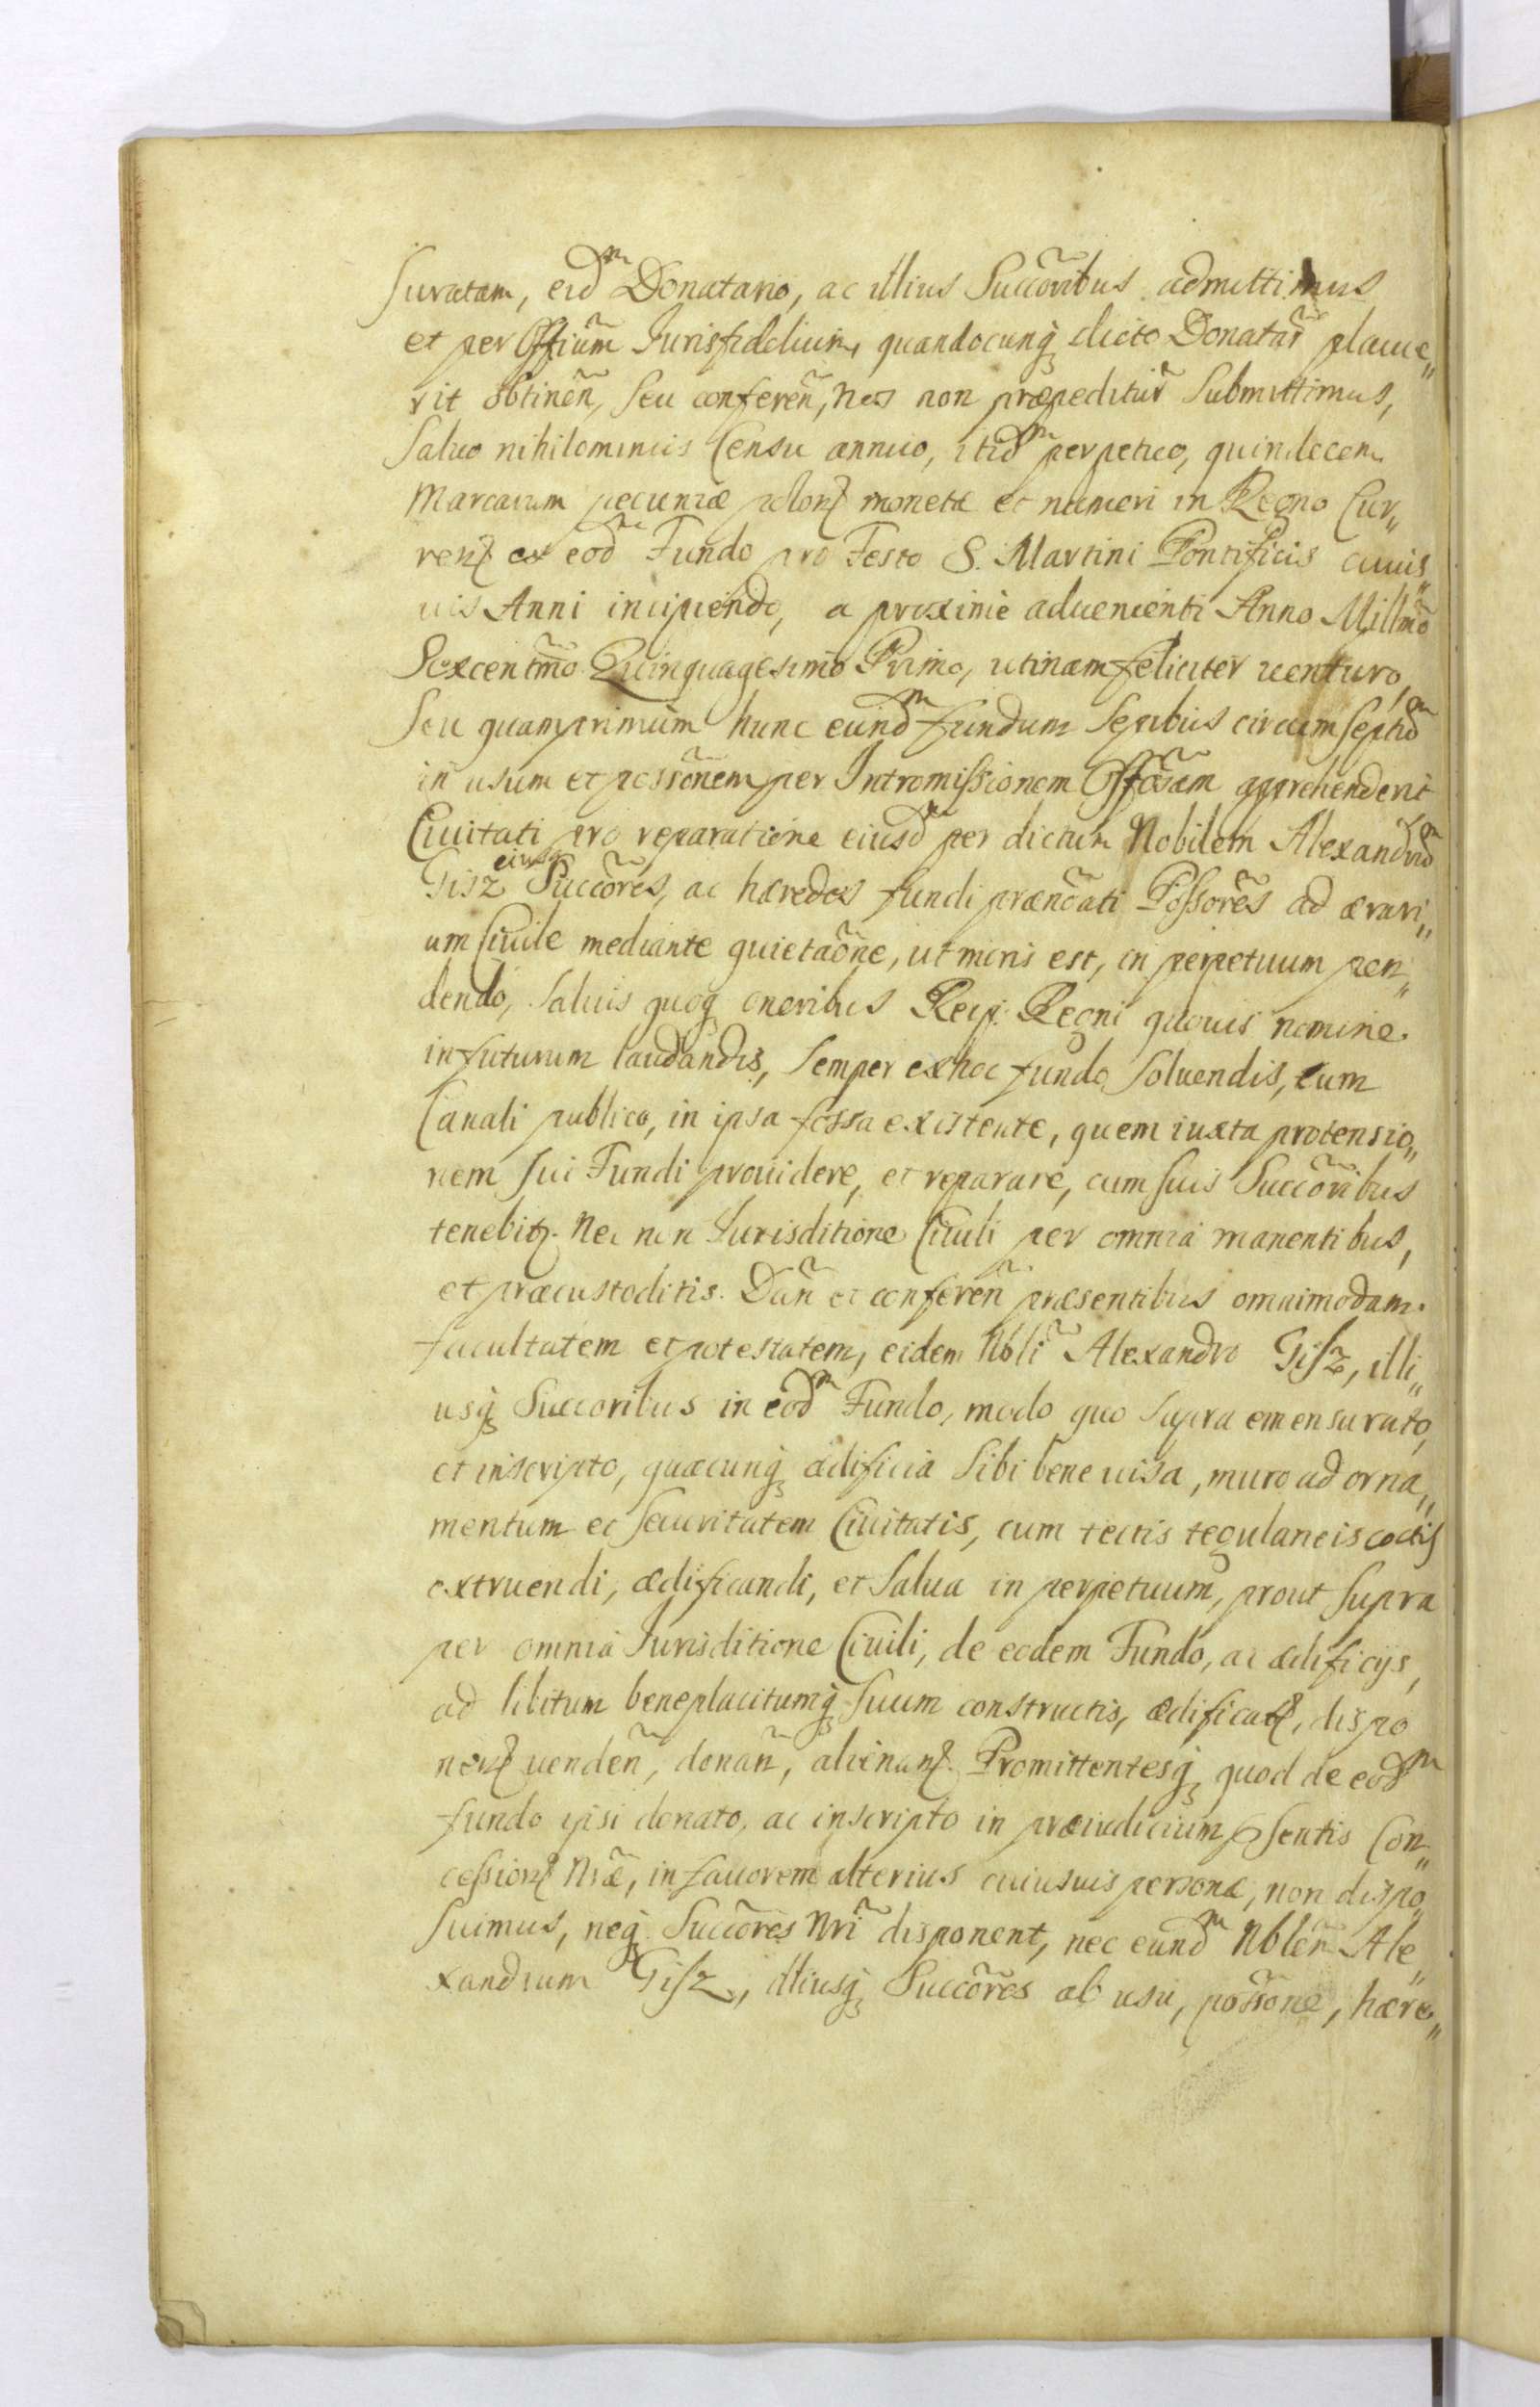 suratam, eidm Donatario, ac illius Succoribus admittimus
et per Offium Jurisfidelium, quandocunq dicto Donatar placue„
rit obtinen, seu conferen, Nos non præpeditur submittimus,
Saluo nihilominus Censu annuo, itidm perpetuo, quindecem
Marcarum pecuniæ polon monetæ et numeri in Regno Cur„
ren ex eodm Fundo pro Festo S. Martini Pontificis cuius„
uis Anni incipiendo, a proxime aduenienti Anno Millmo
Sexcentmo Quinquagesimo Primo, utinam feliciter uenturo,
seu quamprimum hunc eundm fundum Sepibus circumseptum
in usum et possonem per Intromissionem Offosam apprehenderit
Ciuitati pro reparatione eiusdm per dictum Nobilem Alexandrum
Gisz eiusq Succores, ac hæredes fundi prænoati Possores ad ærari„
um Ciuile mediante quietaone, ut moris est, in perpetuum pen„
dendo, Saluis quoq oneribus Reip: Regni quouis nomine
in futurum laudandis, Semper ex hoc fundo Soluendis, cum
Canali publico, in ipsa fossa existente, quem iuxta protensio„
nem sui Fundi prouidere, et reparare, cum suis Succoribus
tenebitr. Nec non Jurisditione Ciuili per omnia manentibus,
et præcustoditis. Dan et conferen præsentibus omnimodam
facultatem et potestatem, eidem Nbli Alexandro Gisz, illi„
usq Succoribus in eodm Fundo, modo quo supra emensurato,
et inscripto, quæcunq ædificia Sibi bene uisa, muro ad orna„
mentum et Securitatem Ciuitatis, cum tectis tegulaneis coctis
extruendi, ædificandi, et Salua in perpetuum, prout Supra
per omnia Jurisditione Ciuili, de eodem Fundo, ac ædificijs,
ad libitum beneplacitumq suum constructis, ædificat, dispo
nen uenden, donan, alienan. Promittentesq quod de eodm
fundo ipsi donato, ac inscripto in præiudicium psentis Con„
cession Nræ, in fauorem alterius cuiusuis personæ, non dispo„
suimus, neq Succores Nri disponent, nec eundm Nblem Ale„
xandrum Gisz, illiusq Succores ab usu, possone, hære„